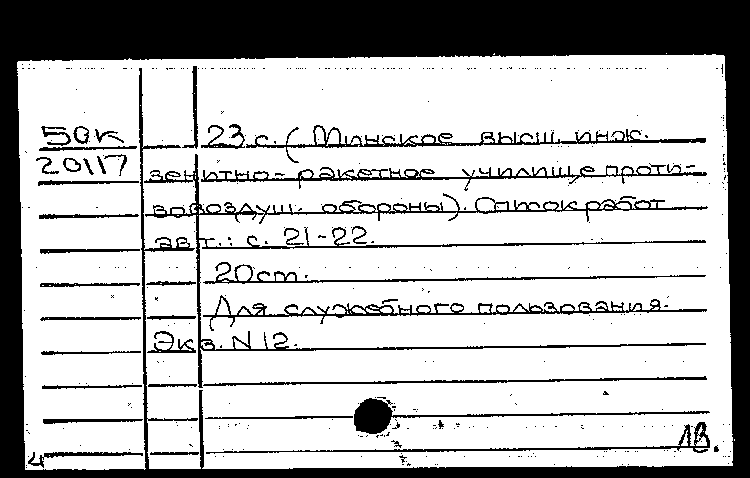 50к 23 с. (Минское высш. инж.
20117 зенитно-ракетное училище проти-
вовоздуш. обороны). Список работ
авт.: с. 21-22.
20 см.
Для служебного пользования.
Экз. N 12.
1В.
4